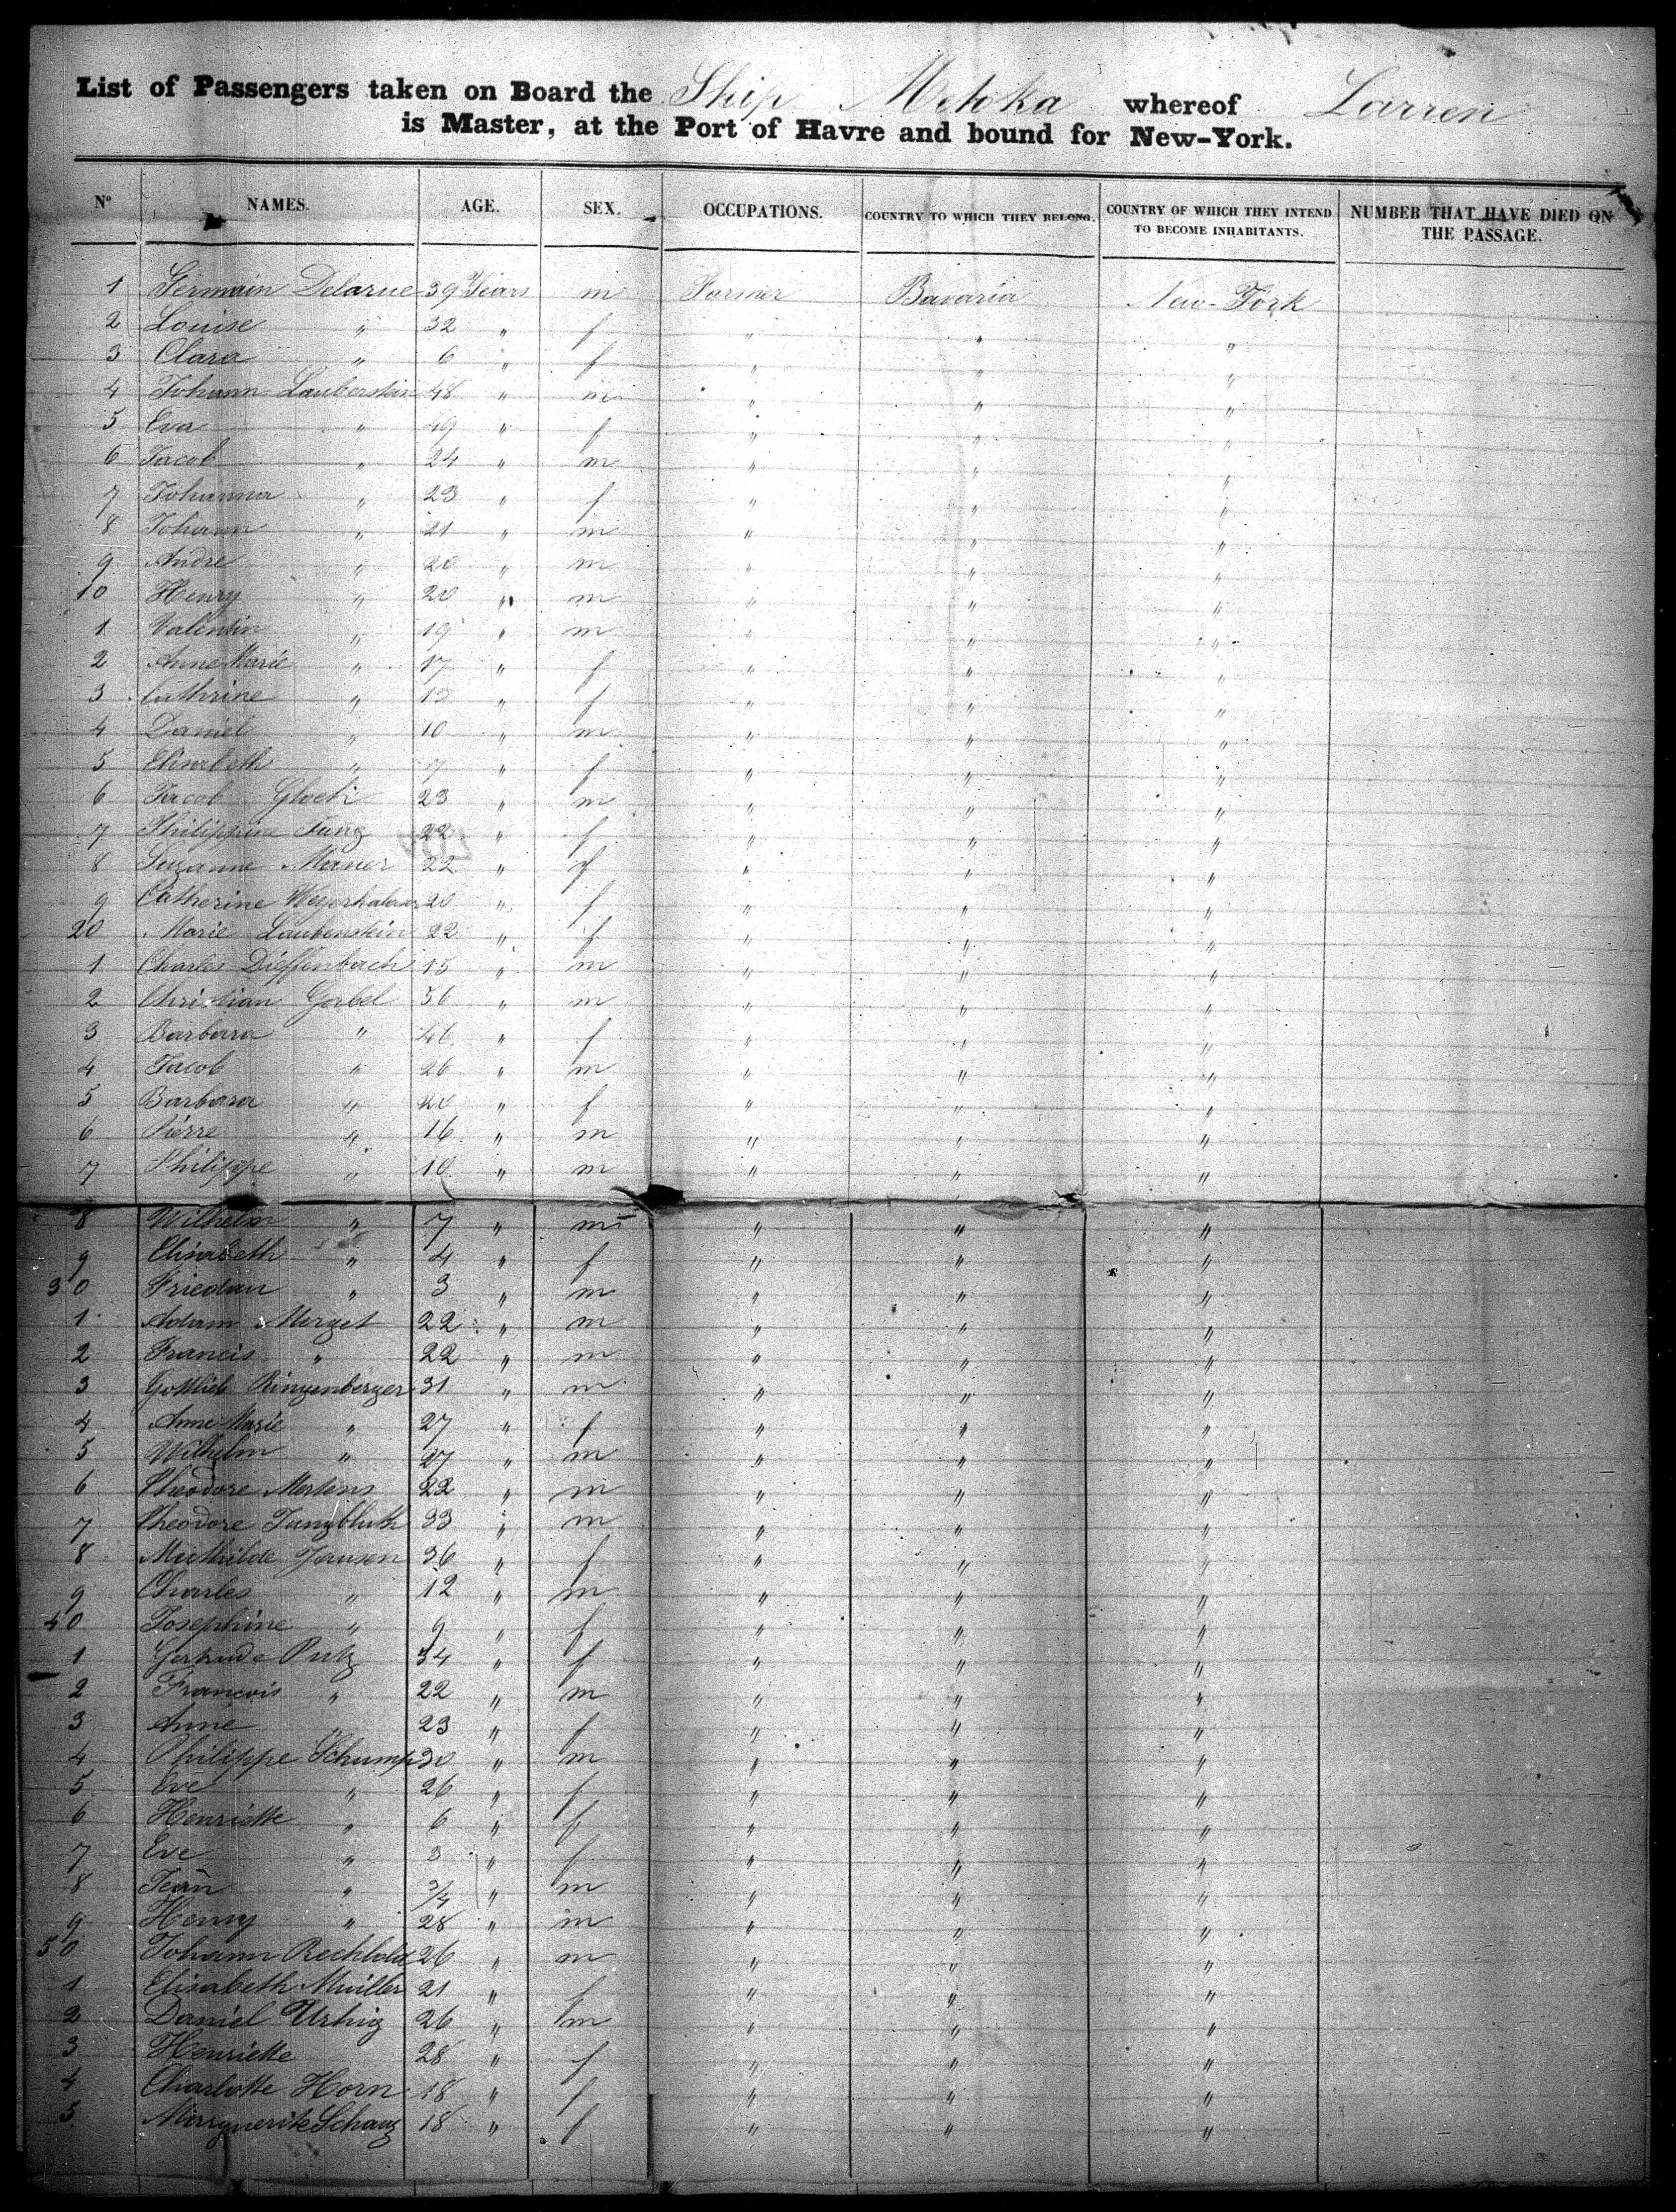 List of Passengers taken on Board the Ship Metoka whereof Larren
is Master, at the Port of Havre and bound for New-York.
N° NAMES. AGE. SEX. OCCUPATIONS. COUNTRY TO WHICH THEY BELONG. COUNTRY OF WHICH THEY INTEND TO BECOME INHABITANTS. NUMBER THAT HAVE DIED ON THE PASSAGE.
1 Germain Delarue 39 Years m Farmer Bavaria New-York
2 Louise " 32 " f " " "
3 Clara " 6 " f " " "
4 Johann Laubenstein 48 " m " " "
5 Eva " 49 " f " " "
6 Jacob " 24 " m " " "
7 Johanna " 23 " f " " "
8 Johann " 21 " m " " "
9 Andre " 20 " m " " "
10 Henry " 20 " m " " "
1 Valentin " 19 " m " " "
2 Anne Marie " 17 " f " " "
3 Cathrine " 13 " f " " "
4 Daniel " 10 " m " " "
5 Elisabeth " 7 " f " " "
6 Jacob 23 " m " " "
7 Philippine Jung 22 " f " " "
8 Suzanne Maner 22 " f " " "
9 Catherine 20 " f " " "
20 Marie Laubenstein 22 " f " " "
1 Charles Dieffenbach 15 " m " " "
2 Christian Gabel 56 " m " " "
3 Barbara " 46 " f " " "
4 Jacob " 26 " m " " "
5 Barbara " 20 " f " " "
6 Pierre " 16 " m " " "
7 Philippe " 10 " m " " "
8 Wilhelm " 7 " m " " "
9 Elisabeth " 4 " f " " "
30 Friedan " 3 " m " " "
1 Adam Merget 22 " m " " "
2 Francis " 22 " m " " "
3 Gottlieb Ringenberger 31 " m " " "
4 Anne Marie " 27 " f " " "
5 Wilhelm " 27 " m " " "
6 Theodore Mertens 22 " m " " "
7 Theodore Jungbluth 33 " m " " "
8 Mathilde Jansen 36 " f " " "
9 Charles " 12 " m " " "
40 Josephine " 9 " f " " "
1 Gertrude Putz 54 " f " " "
2 Francois " 22 " m " " "
3 Anne " 23 " f " " "
4 Philippe Schump 30 " m " " "
5 Eve " 26 " f " " "
6 Henriette " 6 " f " " "
7 Eve " 3 " f " " "
8 Jean " 3/4 " m " " "
9 Henry " 28 " m " " "
50 Johann Rechhold 26 " m " " "
1 Elisabeth Muller 21 " f " " "
2 Daniel Urhig 26 " m " " "
3 Henriette 28 " f " " "
4 Charlotte Horn 18 " f " " "
5 Marguerite Schanz 18 " f " " "